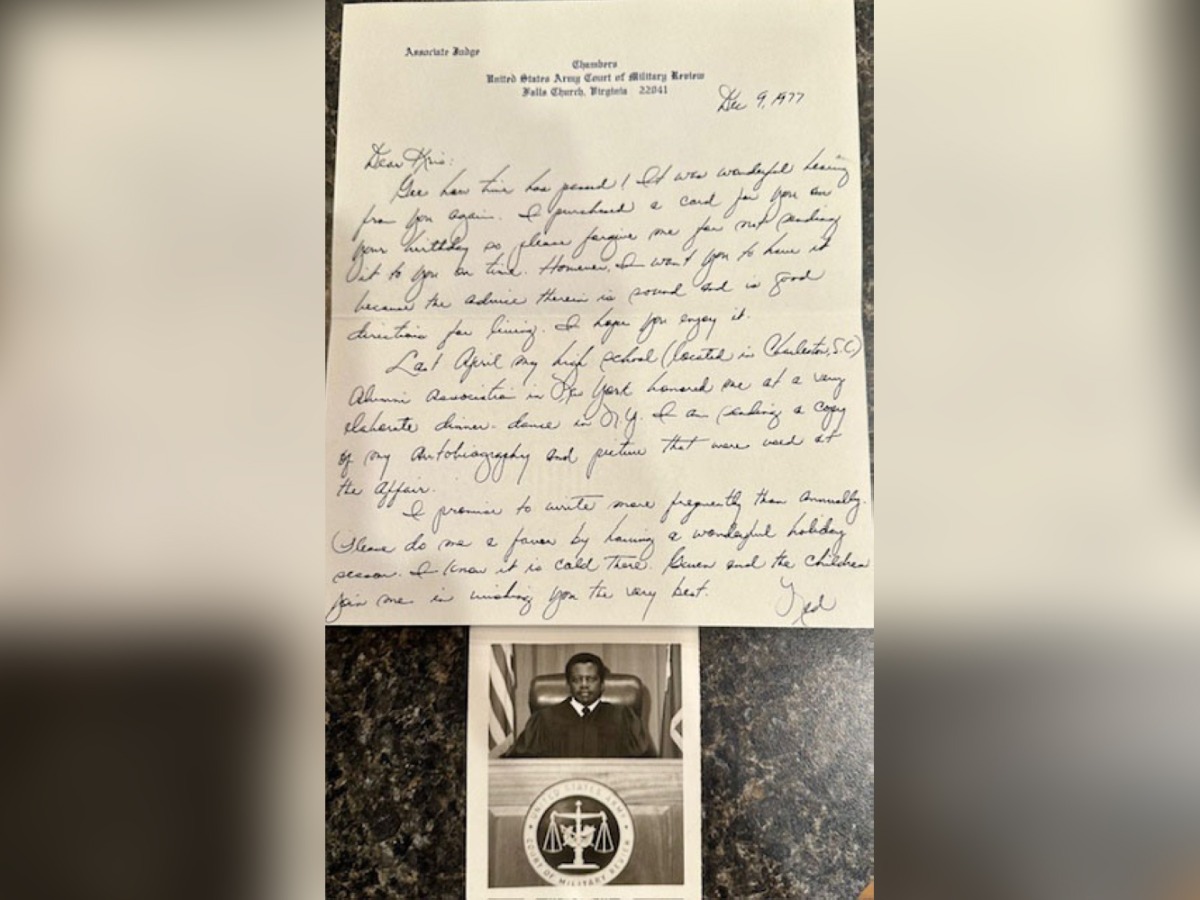 Associate Judge
Chambers
United States Army Court of Military Review
Falls Church, Virginia 22041
Dec 9, 1977
Dear Kris:
Gee how time has passed! It was wonderful hearing
from you again. I purchased a card for you on
your birthday so please forgive me for not sending
it to you on time. However, I want you to have it
because the advice therein is sound and is good
direction for living. I hope you enjoy it.
Last April my high school (located in Charleston, S.C)
Alumni Association in New York honored me at a very
elaborate dinner-dance in N.Y. I am sending a copy
of my Autobiography and picture that were used at
the affair.
I promise to write more frequently than annually.
Please do me a favor by having a wonderful holiday
season. I know it is cold there. Gwen and the children
join me in wishing you the very best.
UNITED STATES ARMY
COURT OF MILITARY REVIEW